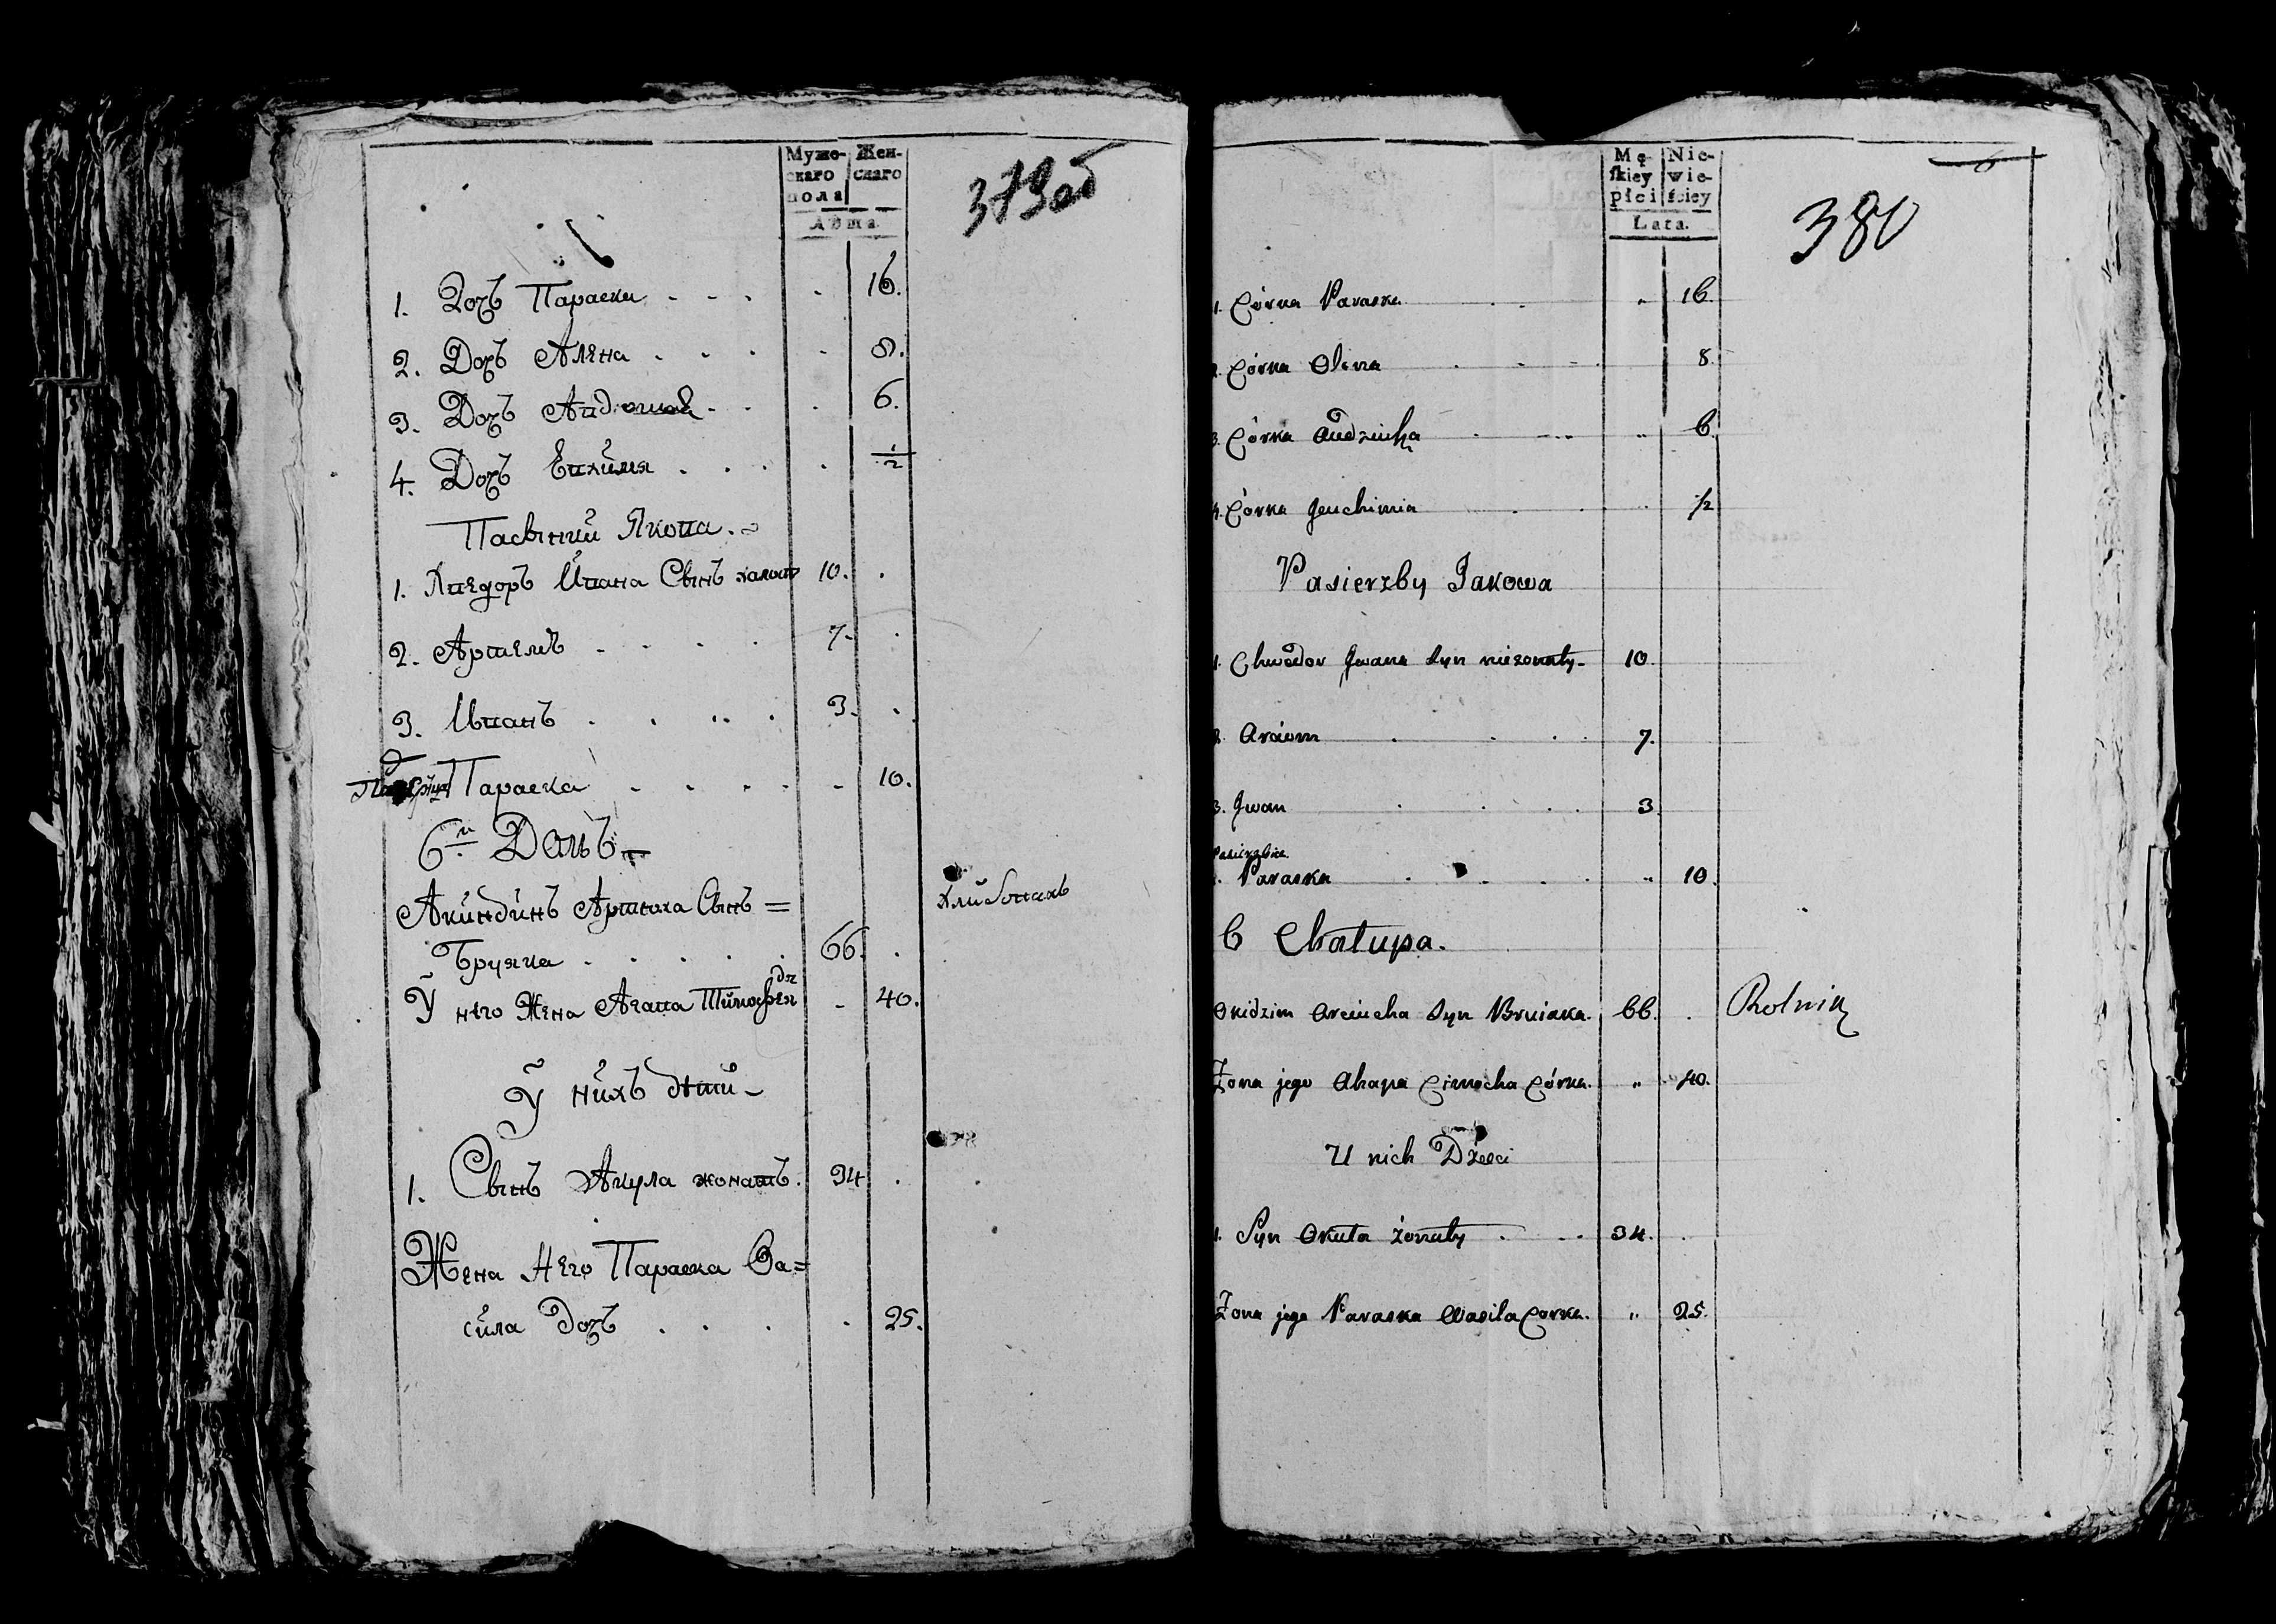 Муже-
скаго
пола
Жен-
скаго
Лѣта.
379об
1. Дочъ Параска . . . . 16.
2. Дочъ Алена . . . . 8.
3. Дочъ . . . 6.
4. Дочъ Евхимя . . . . 1/2
Пасынки Якова.
1. Хведоръ Ивана Сынъ халостъ 10. .
2. Артемъ . . . . 7. .
3. Иванъ . . . . 3. .
Параска . . . . - 10.
6й Домъ
Акиндинъ Артюха Сынъ = Хлибопахъ
Бруяка . . . . . 66. .
У него Жена Агапа Тимофея дч - 40.
У нихъ дѣти
1. Сынъ Акула жонатъ. 34 .
Жена Него Параска Ва=
сила Дочъ . . . . 25.
Mę-
skiey
płci
Nie-
wie-
ściey
Lata.
380
1. Córka Paraska . . „ 16.
2. Córka Olena . . . 8.
3. Córka Audziucha . . „ 6.
4. Córka Jeuchimia . . . 1/2
Pasierzby Jakowa
1. Chwedor Jwana Syn nieżonaty 10.
2. Arciom . . . 7.
3. Jwan . . . 3.
Pasierzbica
1. Paraska . . . . „ 10.
6 Chałupa.
Okidzim Arciucha Syn Bruiaka. 66. . Rolnik
Żona jego Ahapa Cimocha Córka. „ 40.
U nich Dzieci
1. Syn Okuła żonaty . . . 34. .
Żona jego Paraska Wasila Corka. „ 25.